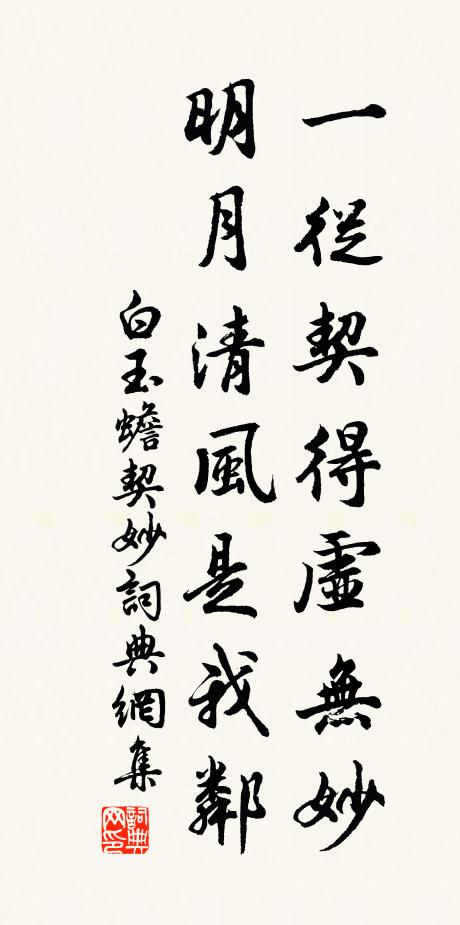 一從契得虛無妙
明月清風是我鄰
白玉蟾契妙詞典網集
詞典网印